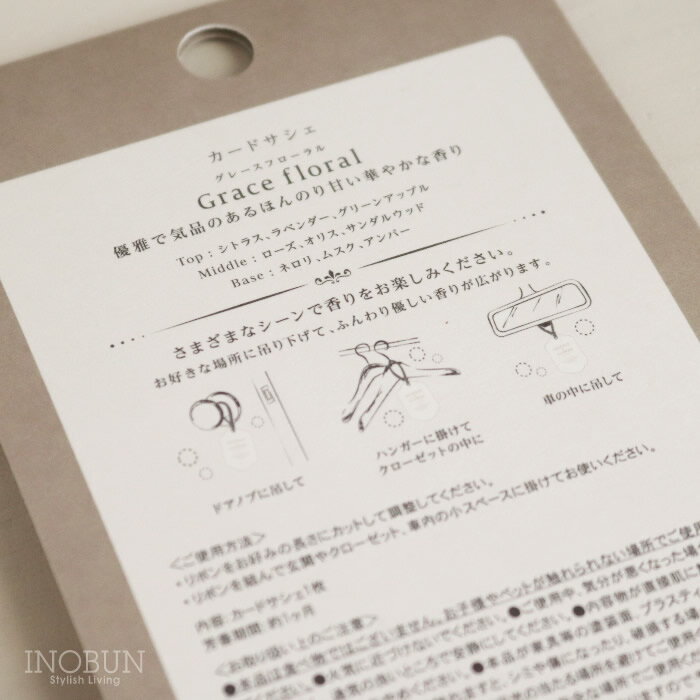 カードサシェ
グレースフローラル
Grace floral
優雅で気品のあるほんのり甘い華やかな香り
Top：シトラス、ラベンダー、グリーンアップル
Middle：ローズ、オリス、サンダルウッド
Base：ネロリ、ムスク、アンバー
さまざまなシーンで香りをお楽しみください。
お好きな場所に吊り下げて、ふんわり優しい香りが広がります。
ドアノブに吊して
ハンガーに掛けて
クローゼットの中に
車の中に吊して
<ご使用方法>
・リボンをお好みの長さにカットして調整してください。
・リボンを結んで玄関やクローゼット、車内の小スペースに掛けてお使いください。
内容：カードサシェ1枚
芳香期間：約1ヶ月
<お取り扱い上のご注意>
●本品は食べ物ではございません。お子様やペットが触れられない場所でご使用
に近づけないでください。●ご使用中、気分が悪くなった場
通気の良いところで保管してください。●内容物が直接肌に
●本品が家具等の塗装面、プラスティ
INOBUN
Stylish Living